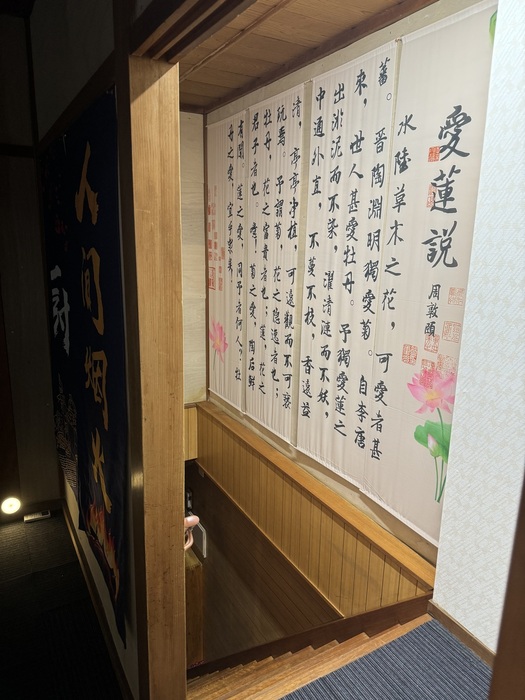 愛蓮説
周敦頤
水陸草木之花，可愛者甚
蕃。晉陶淵明獨愛菊。自李唐
來，世人甚愛牡丹。予獨愛蓮之
出淤泥而不染，濯清漣而不妖，
中通外直，不蔓不枝，香遠益
清，亭亭净植，可遠觀而不可褻
玩焉。予謂菊，花之隱逸者也；
牡丹，花之富貴者也；蓮，花之
君子者也。噫，菊之愛，陶后鮮
有聞。蓮之愛，同予者何人？牡
丹之愛，宜乎衆矣。
人间烟火